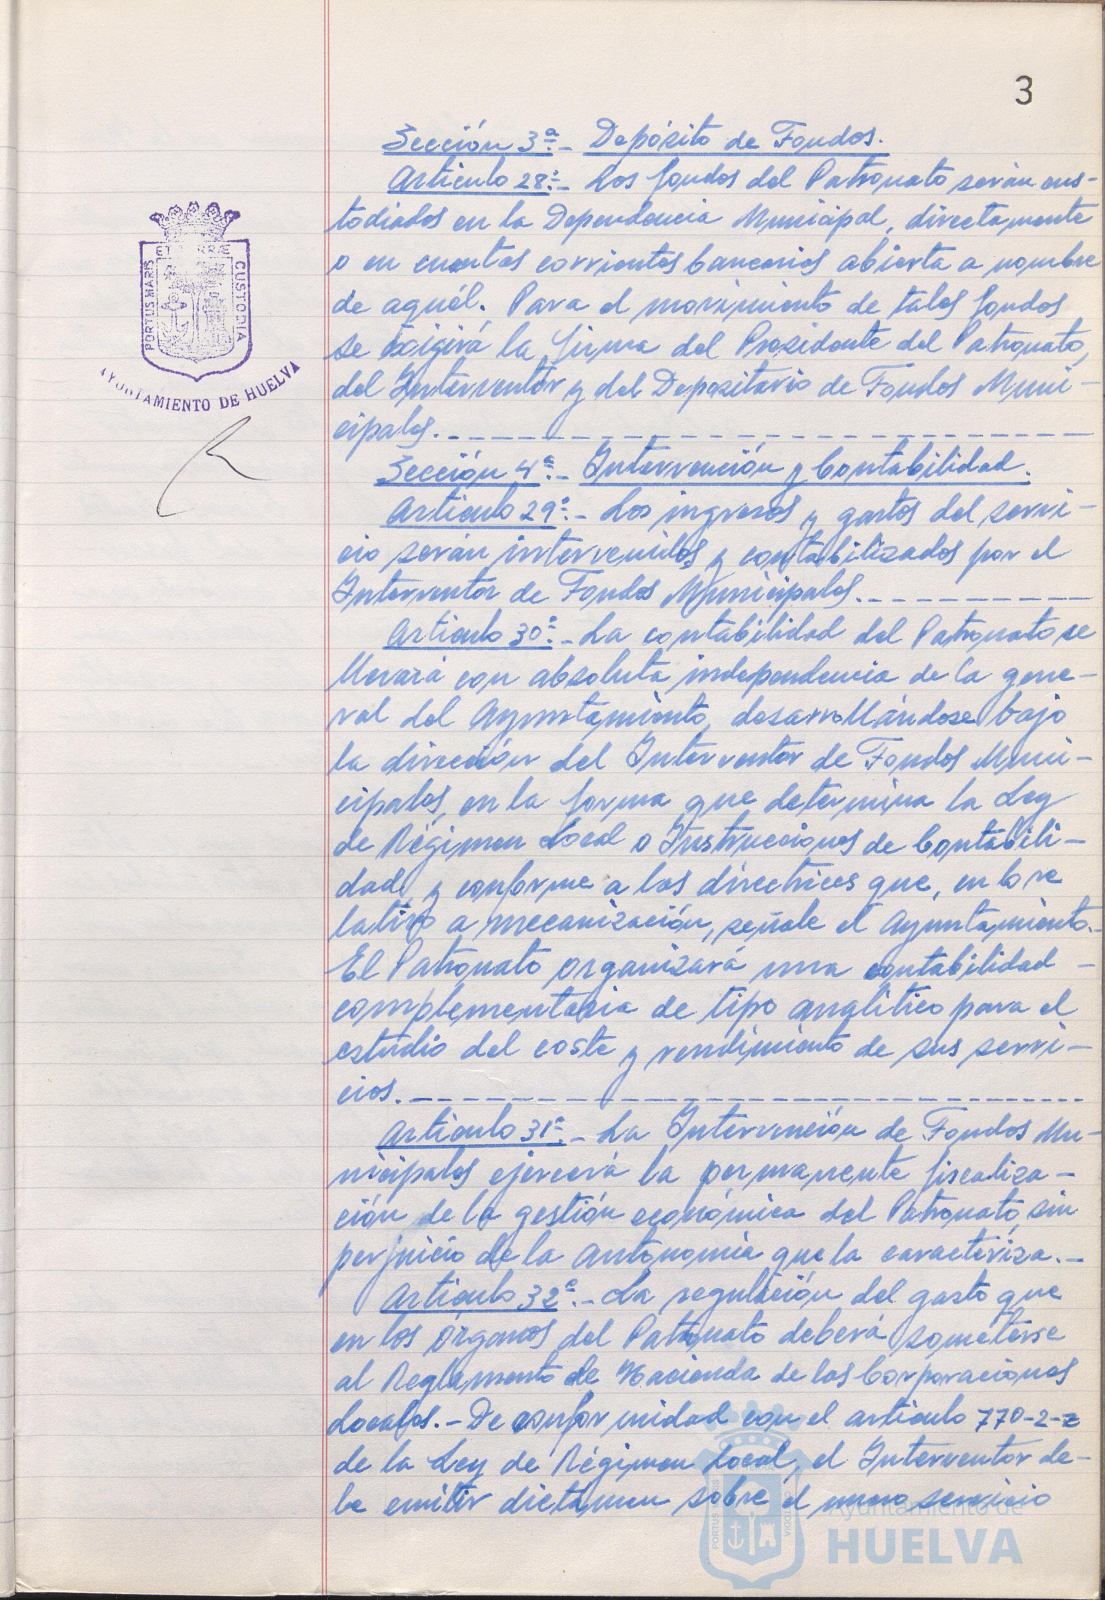 3
Sección 3ª.- Depósito de Fondos.
Artículo 28º.- Los fondos del Patronato serán cus-
todiados en la Dependencia Municipal, directamente
o en cuentas corrientes bancarias abierta a nombre
de aquél. Para el movimiento de tales fondos
se exigirá la firma del Presidente del Patronato,
del Interventor y del Depositario de Fondos Muni-
cipales.
Sección 4ª.- Intervención y Contabilidad.
Artículo 29º.- Los ingresos y gastos del servi-
cio serán intervenidos y contabilizados por el
Interventor de Fondos Municipales.
Artículo 30º.- La contabilidad del Patronato se
llevará con absoluta independencia de la gene-
ral del Ayuntamiento, desarrollándose bajo
la dirección del Interventor de Fondos Muni-
cipales, en la forma que determina la Ley
de Régimen Local o Instrucciones de Contabili-
dad, y conforme a las directrices que, en lo re
lativo a mecanización, señale el Ayuntamiento.-
El Patronato organizará una contabilidad -
complementaria de tipo analítico para el
estudio del coste y rendimiento de sus servi-
cios.
Artículo 31º.- La Intervención de Fondos Mu-
nicipales ejercerá la permanente fiscaliza-
ción de la gestión económica del Patronato, sin
perjuicio de la autonomía que la caracteriza.-
Artículo 32º.- La regulación del gasto que
en los órganos del Patronato deberá someterse
al Reglamento de Hacienda de las Corporaciones
Locales.- De conformidad con el artículo 770-2-2
de la Ley de Régimen Local, el Interventor de-
be emitir dictamen sobre el nuevo servicio
PORTUS MARIS ET TERRÆ CUSTODIA
AYUNTAMIENTO DE HUELVA
Ayuntamiento de
HUELVA